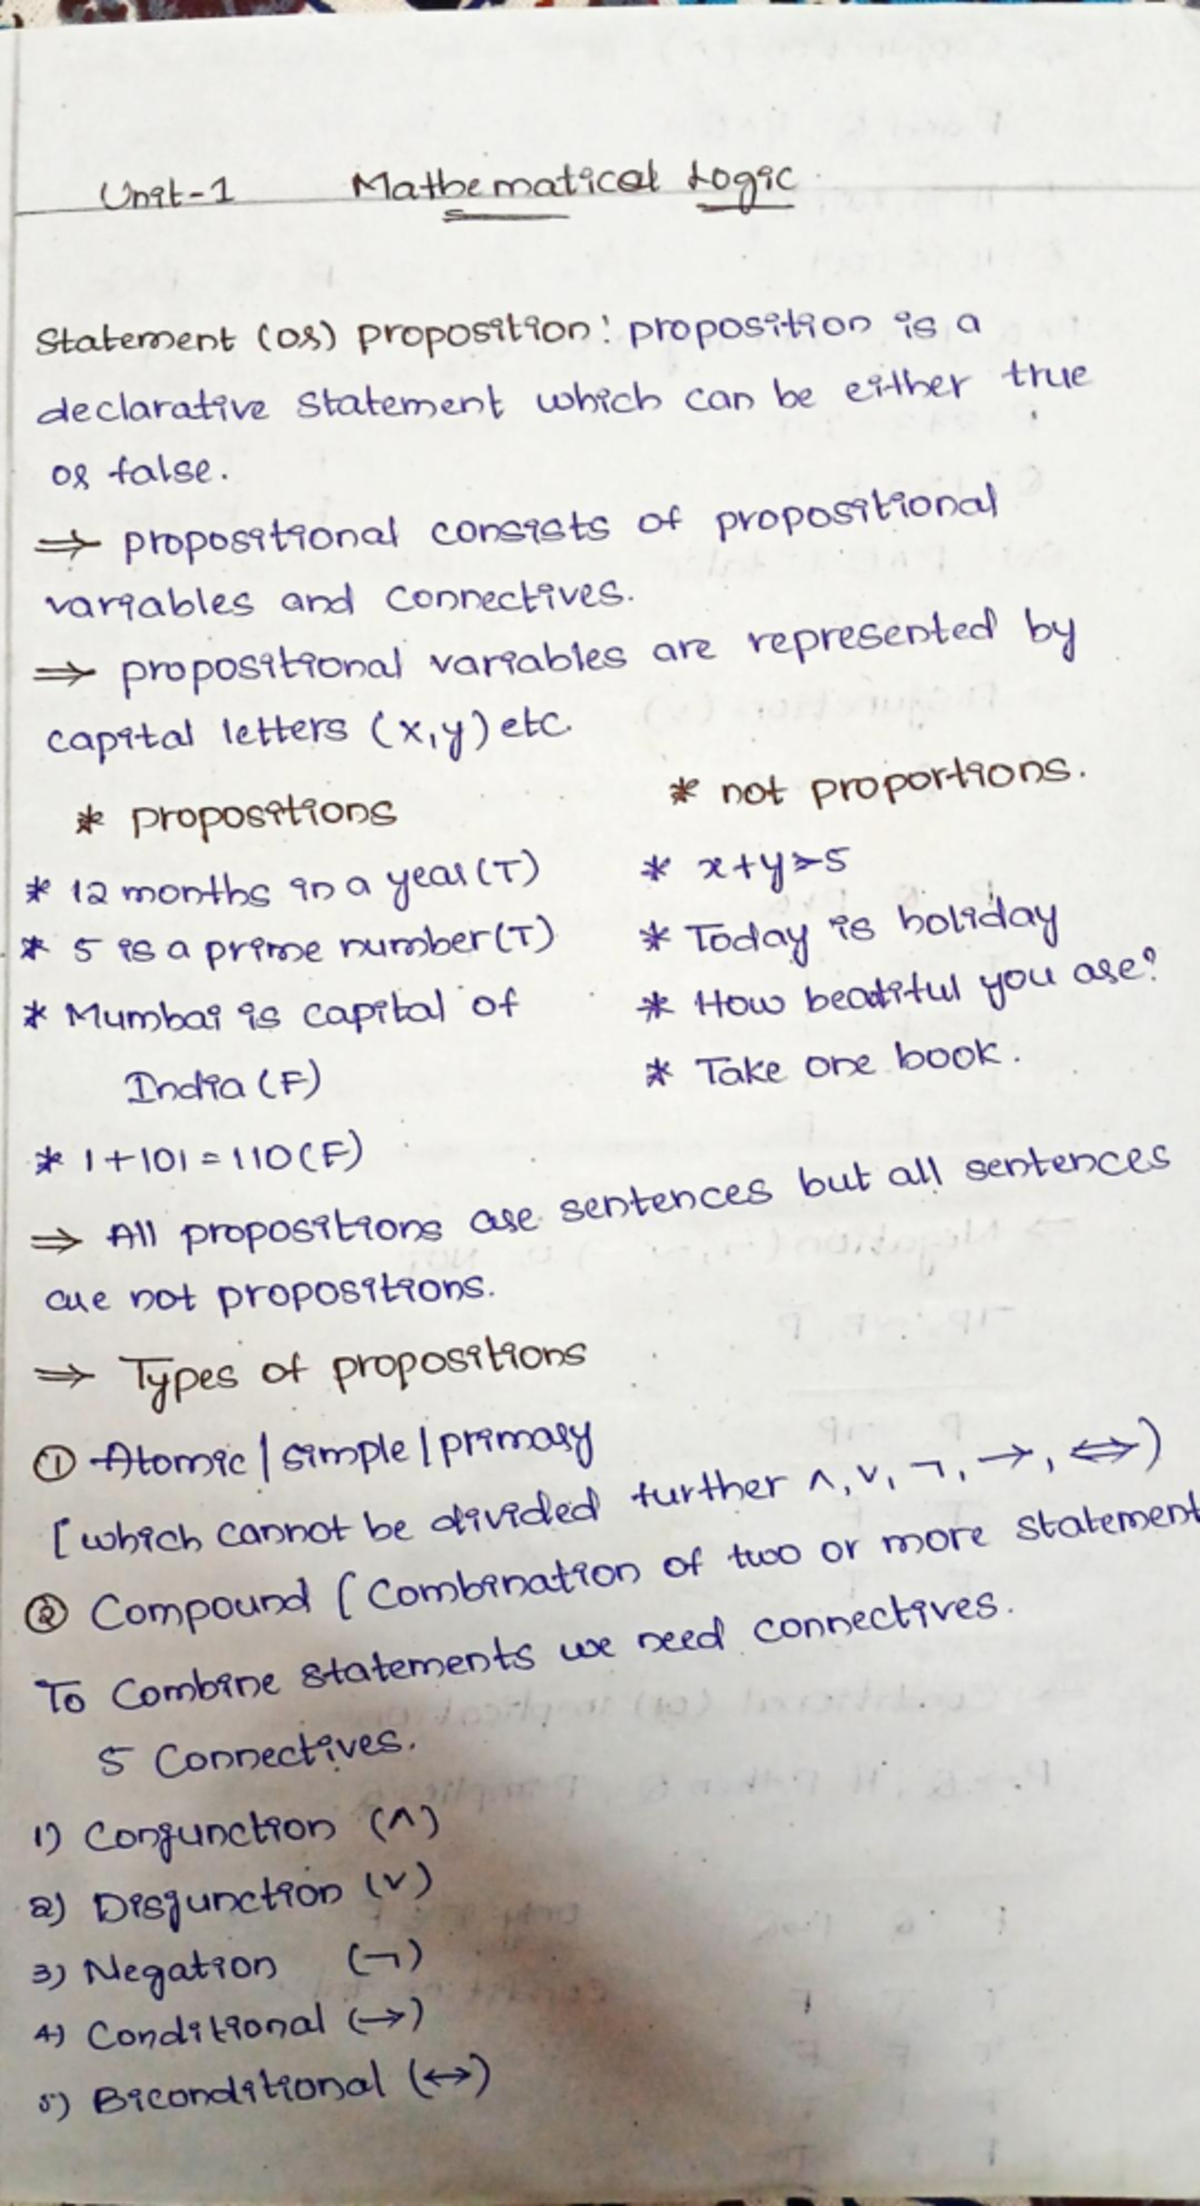 Unit-1 Mathematical Logic
Statement (or) proposition: proposition is a
declarative statement which can be either true
or false.
⇒ propositional consists of propositional
variables and connectives.
⇒ propositional variables are represented by
capital letters (x,y) etc.
* propositions
* not proportions.
* 12 months in a year (T)
* x+y>5
* 5 is a prime number (T)
* Today is holiday
* Mumbai is capital of
India (F)
* How beatiful you are?
* Take one book.
* 1+101=110 (F)
⇒ All propositions are sentences but all sentences
are not propositions.
⇒ Types of propositions
① Atomic | simple | primary
[which cannot be divided further ∧, ∨, ¬, →, ⇔)
② Compound [Combination of two or more statement
To Combine statements we need connectives.
5 Connectives.
1) Conjunction (∧)
2) Disjunction (∨)
3) Negation (¬)
4) Conditional (→)
5) Biconditional (↔)